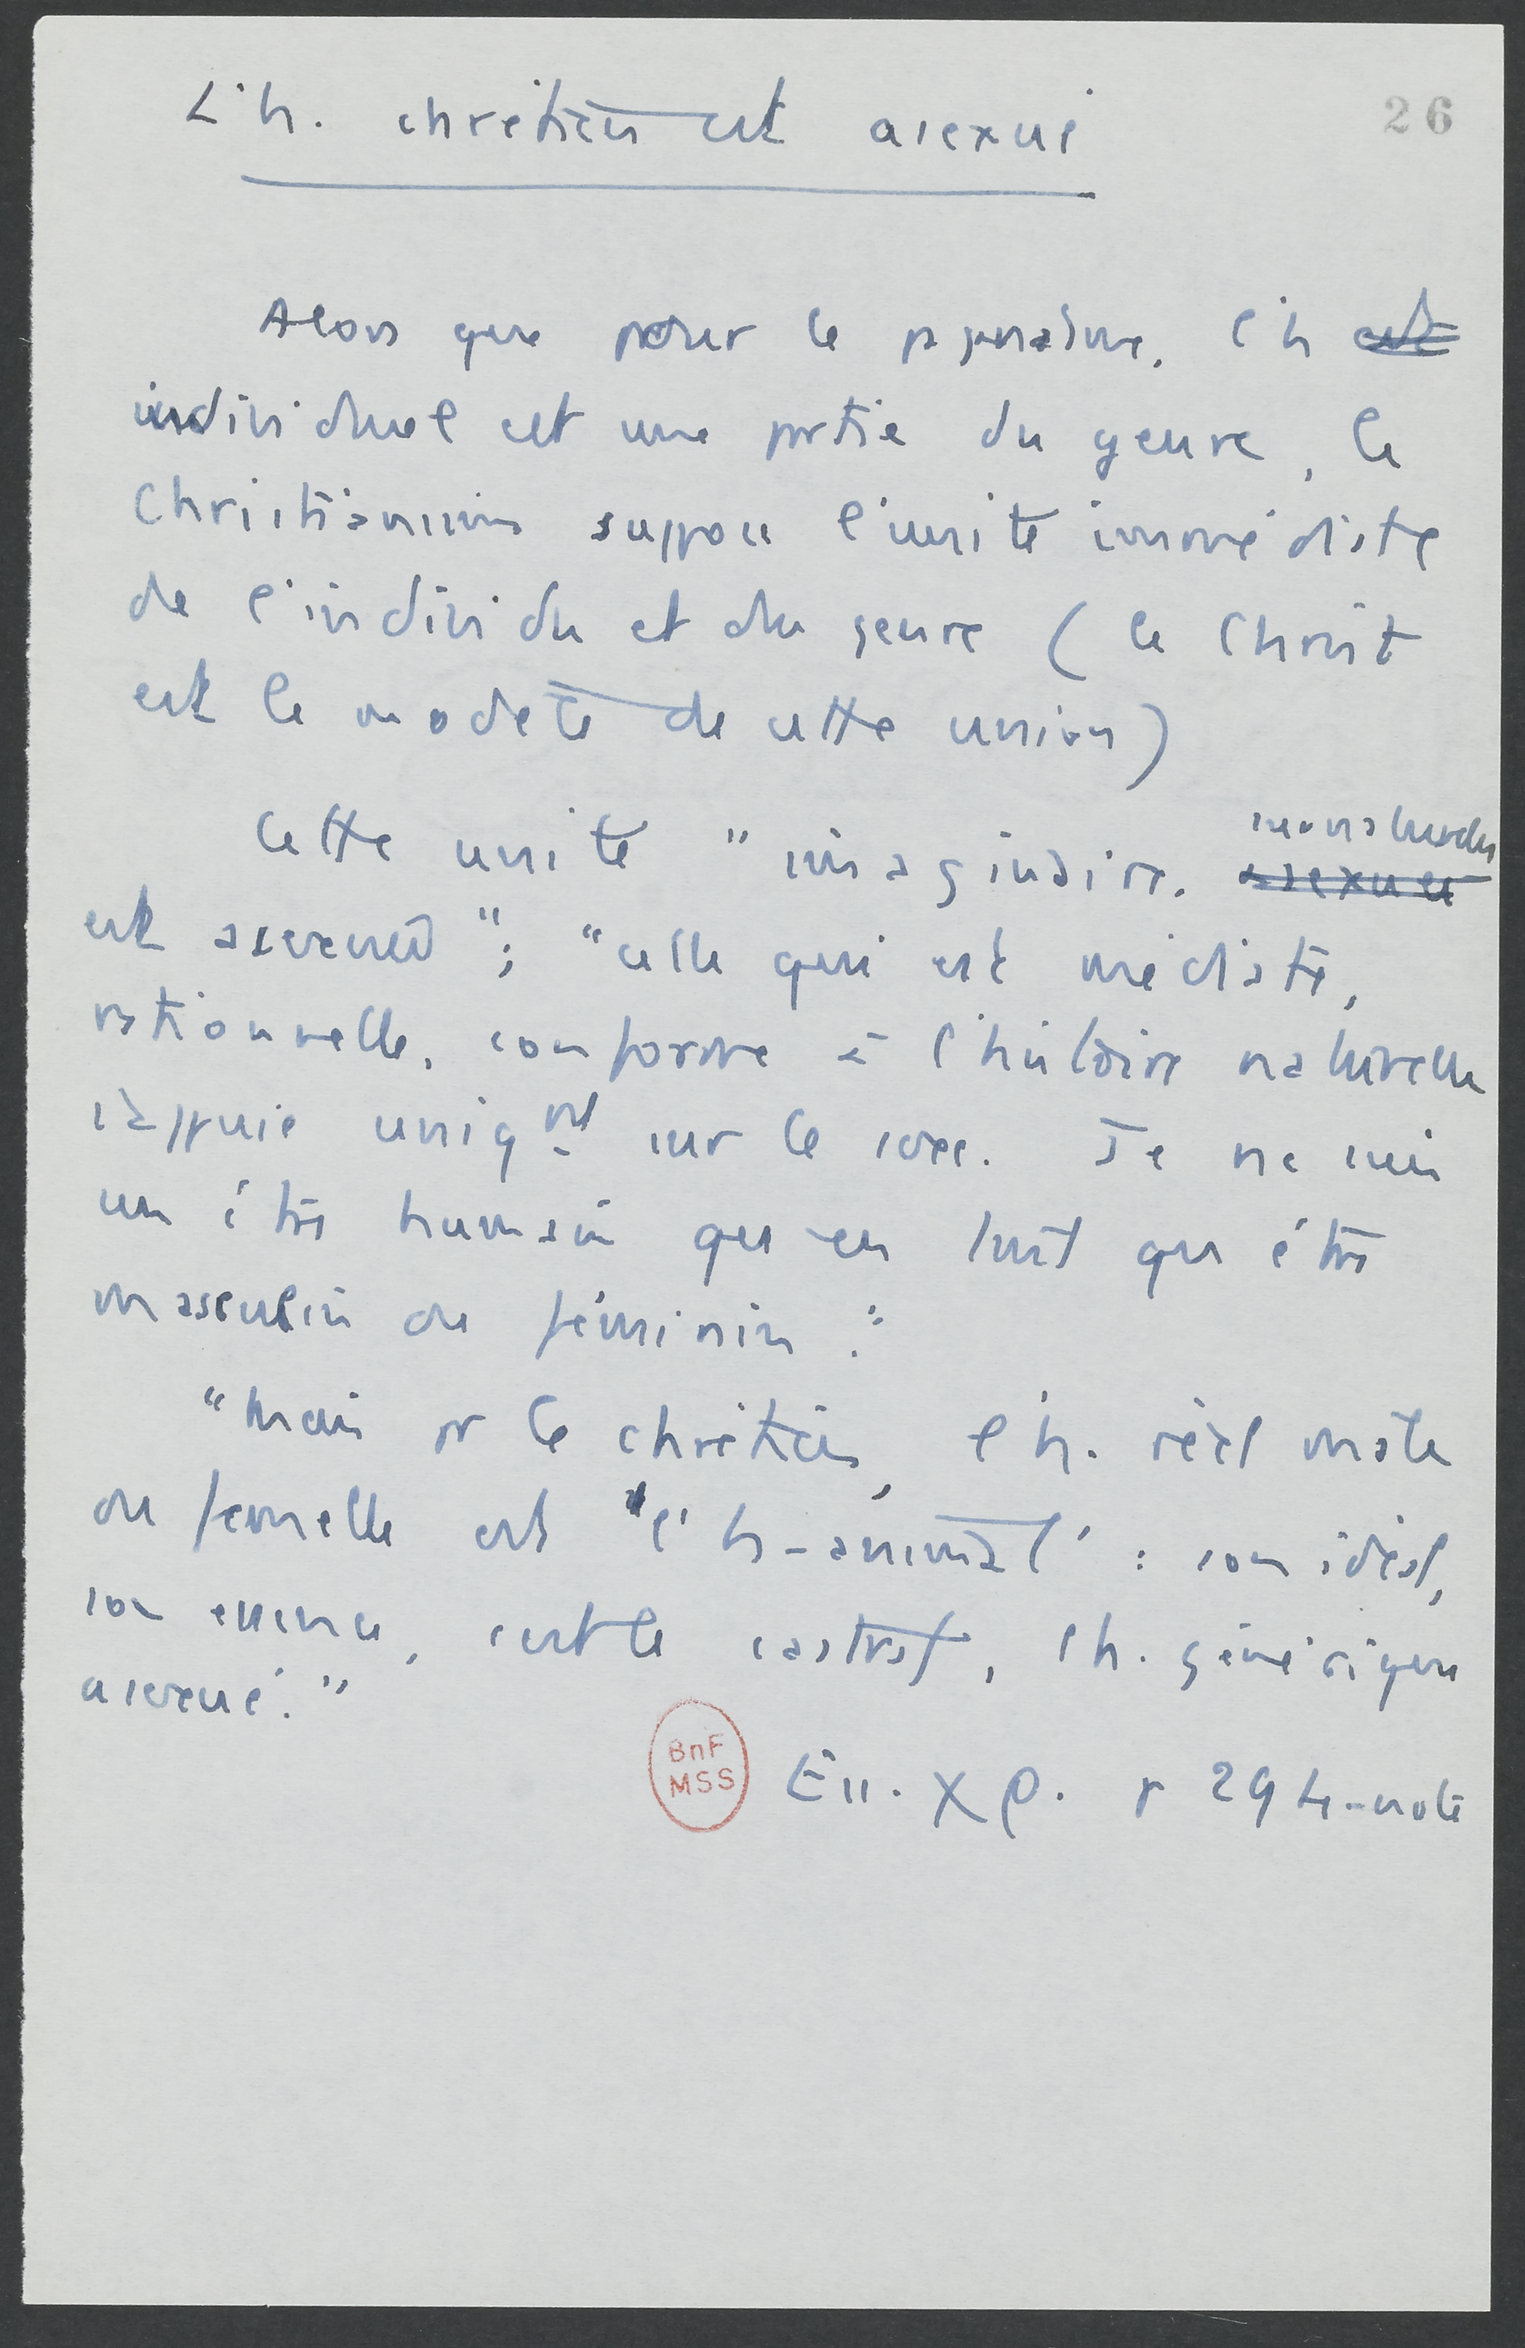 26
L'h. chrétien est asexué
Alors que pour le paganisme, l'h est
individuel est une partie du genre, le
Christianisme suppose l'unité immédiate
de l'individu et du genre (le Christ
est le modèle de cette union)
Cette unité "imaginaire, surnaturelle asexuée
est asexuée"; "celle qui est médiate,
rationnelle, conforme à l'histoire naturelle
s'appuie uniqmt sur le sexe. Je ne suis
un être humain qu'en tant qu'être
masculin ou féminin".
"Mais pr le chrétien, l'h. réel mâle
ou femelle est "l'h-animal" : son idéal,
son essence, c'est le castrat, l'h. générique
asexué."
BnF
MSS
Ess. Xρ. p 294-note